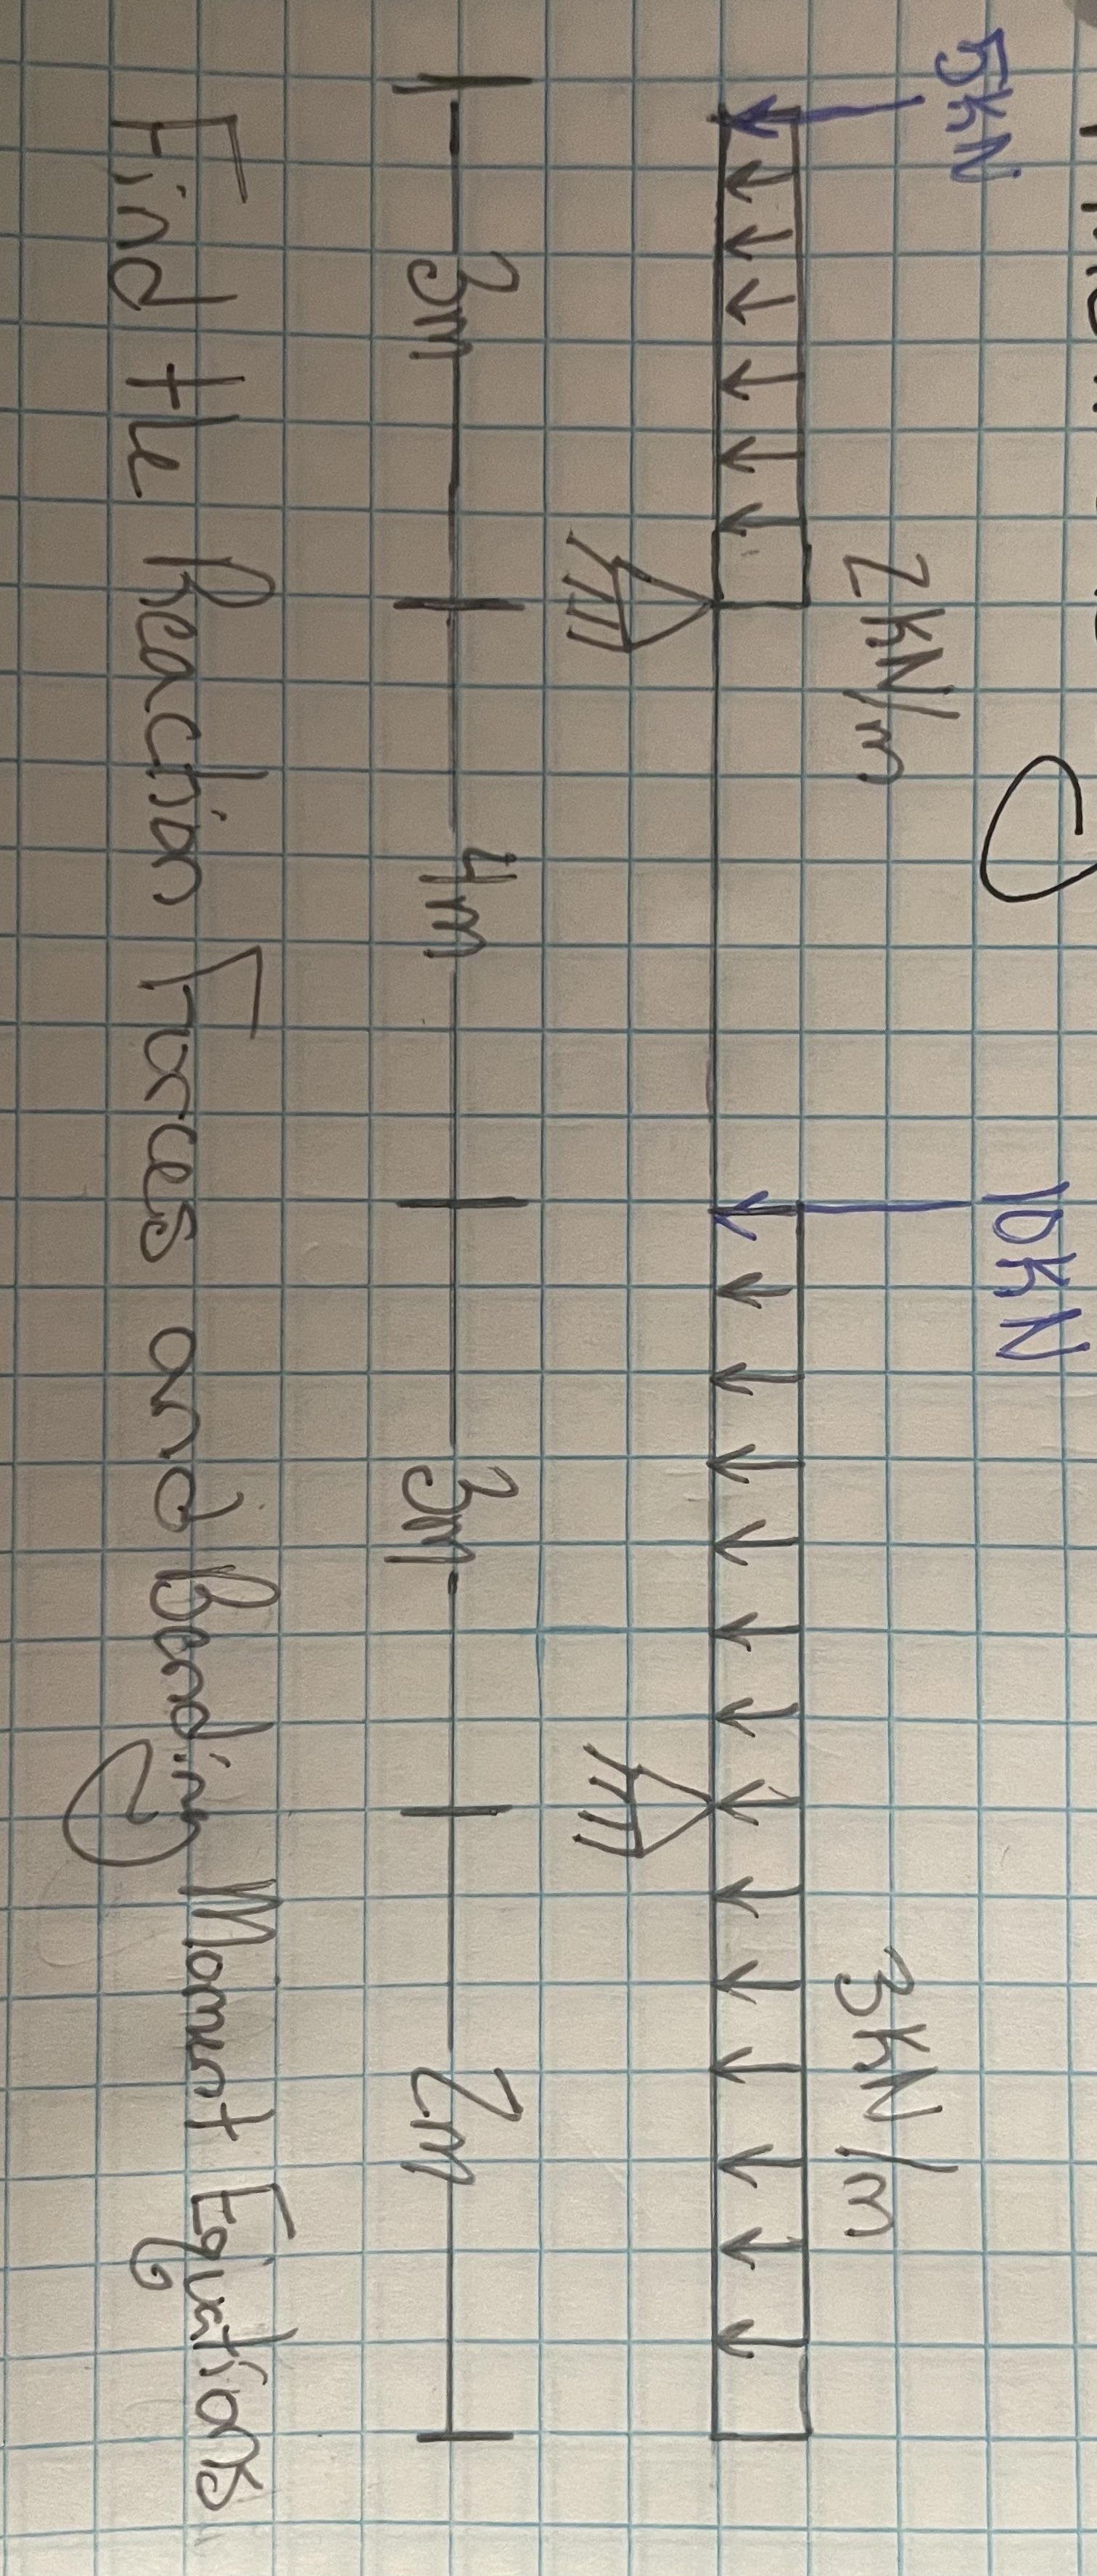 5kN
2kN/m
10kN
3kN/m
3m
4m
3m
2m
Find the Reaction Forces and Bending Moment Equations